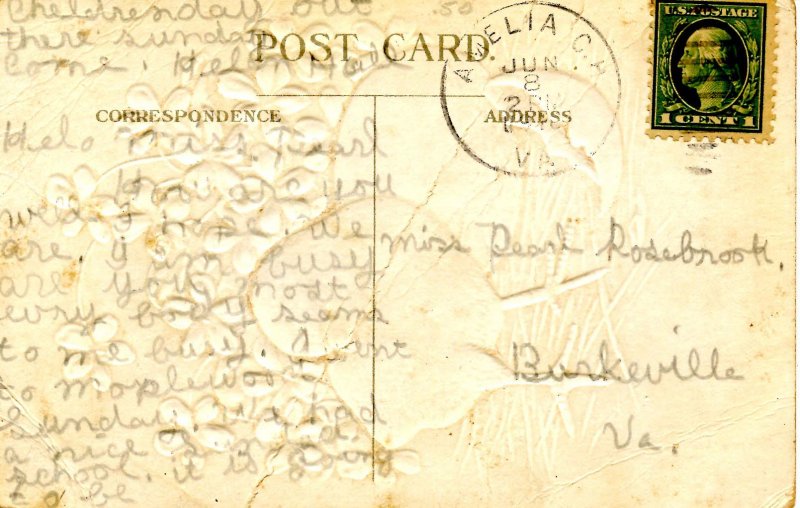 Childrenday out
there sunday
Come. Helen
50
POST CARD.
AMELIA C.H.
JUN
8
2 PM
VA
U.S. POSTAGE
1 CENT 1
CORRESPONDENCE
ADDRESS
Helo Miss. Pearl
How are you
well I hope. We
are. I am busy
are you most
every body seams
to me busy. I went
to maplewood
Sunday. We had
a nice
school. it is going
to be
Miss Pearl Rosebrook.
Burkeville
Va.